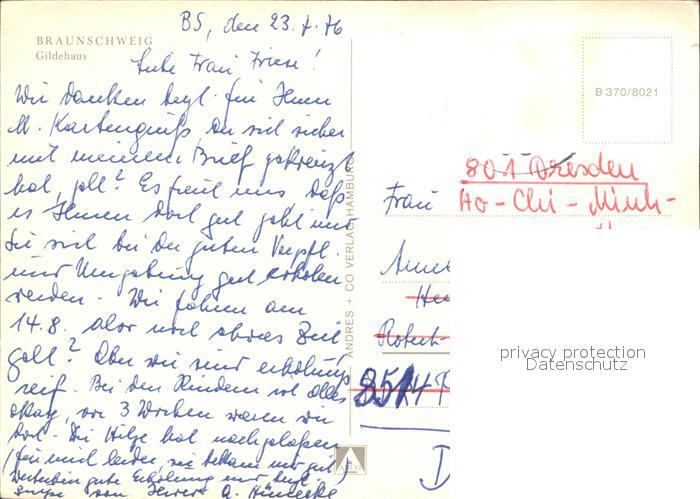 BRAUNSCHWEIG
Gildehaus
BS, den 23.7.76
Liebe Frau Friese!
Wir danken herzl. für Ihren
lb. Kartengruß, der sich sicher
mit meinem Brief gekreuzt
hat, gell? Es freut uns daß
es Ihnen dort gut geht und
Sie sich bei der guten Verpfl.
und Umgebung gut erholen
werden. Wir fahren am
14.8. also noch etwas Zeit
gell? Aber wir sind erholungs
reif. Bei den Kindern ist alles
okay, vor 3 Wochen waren wir
dort. Die Hitze hat nachgelaßen
(für mich leider, sie bekam mir gut)
Weiterhin gute Erholung und herzl.
Grüße von Ihrer
ANDRES + CO VERLAG HAMBURG
ANCO
B 370/8021
801 Dresden
Frau Ho-Chi-Minh-
Anne
Robert-
8514
D
privacy protection
Datenschutz